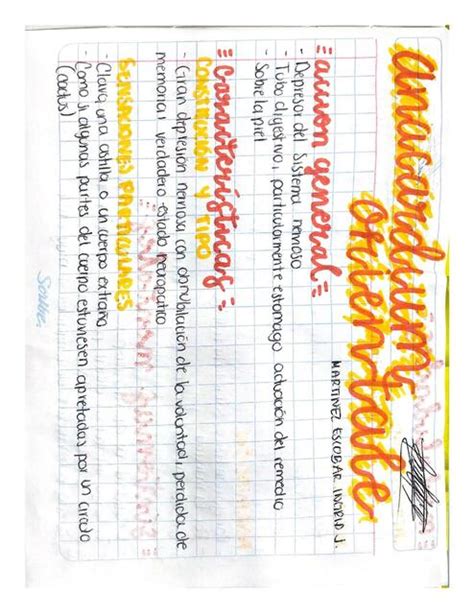 anacardium
orientale
MARTINEZ ESCOBAR INGRID J.
acción general
- Depresor del Sistema nervioso
- Tubo digestivo, particularmente estomago actuación del remedio
- Sobre la piel
Características
CONSTITUCIÓN Y TIPO
- Gran depresión nerviosa con obnubilación de la voluntad, perdida de
memoria, verdadero estado neuropatico
SENSACIONES PARTICULARES
- Clava, una astilla o un cuerpo extraño
- Como si algunas partes del cuerpo estuviesen apretadas por un circulo
(cactus)
Scribe